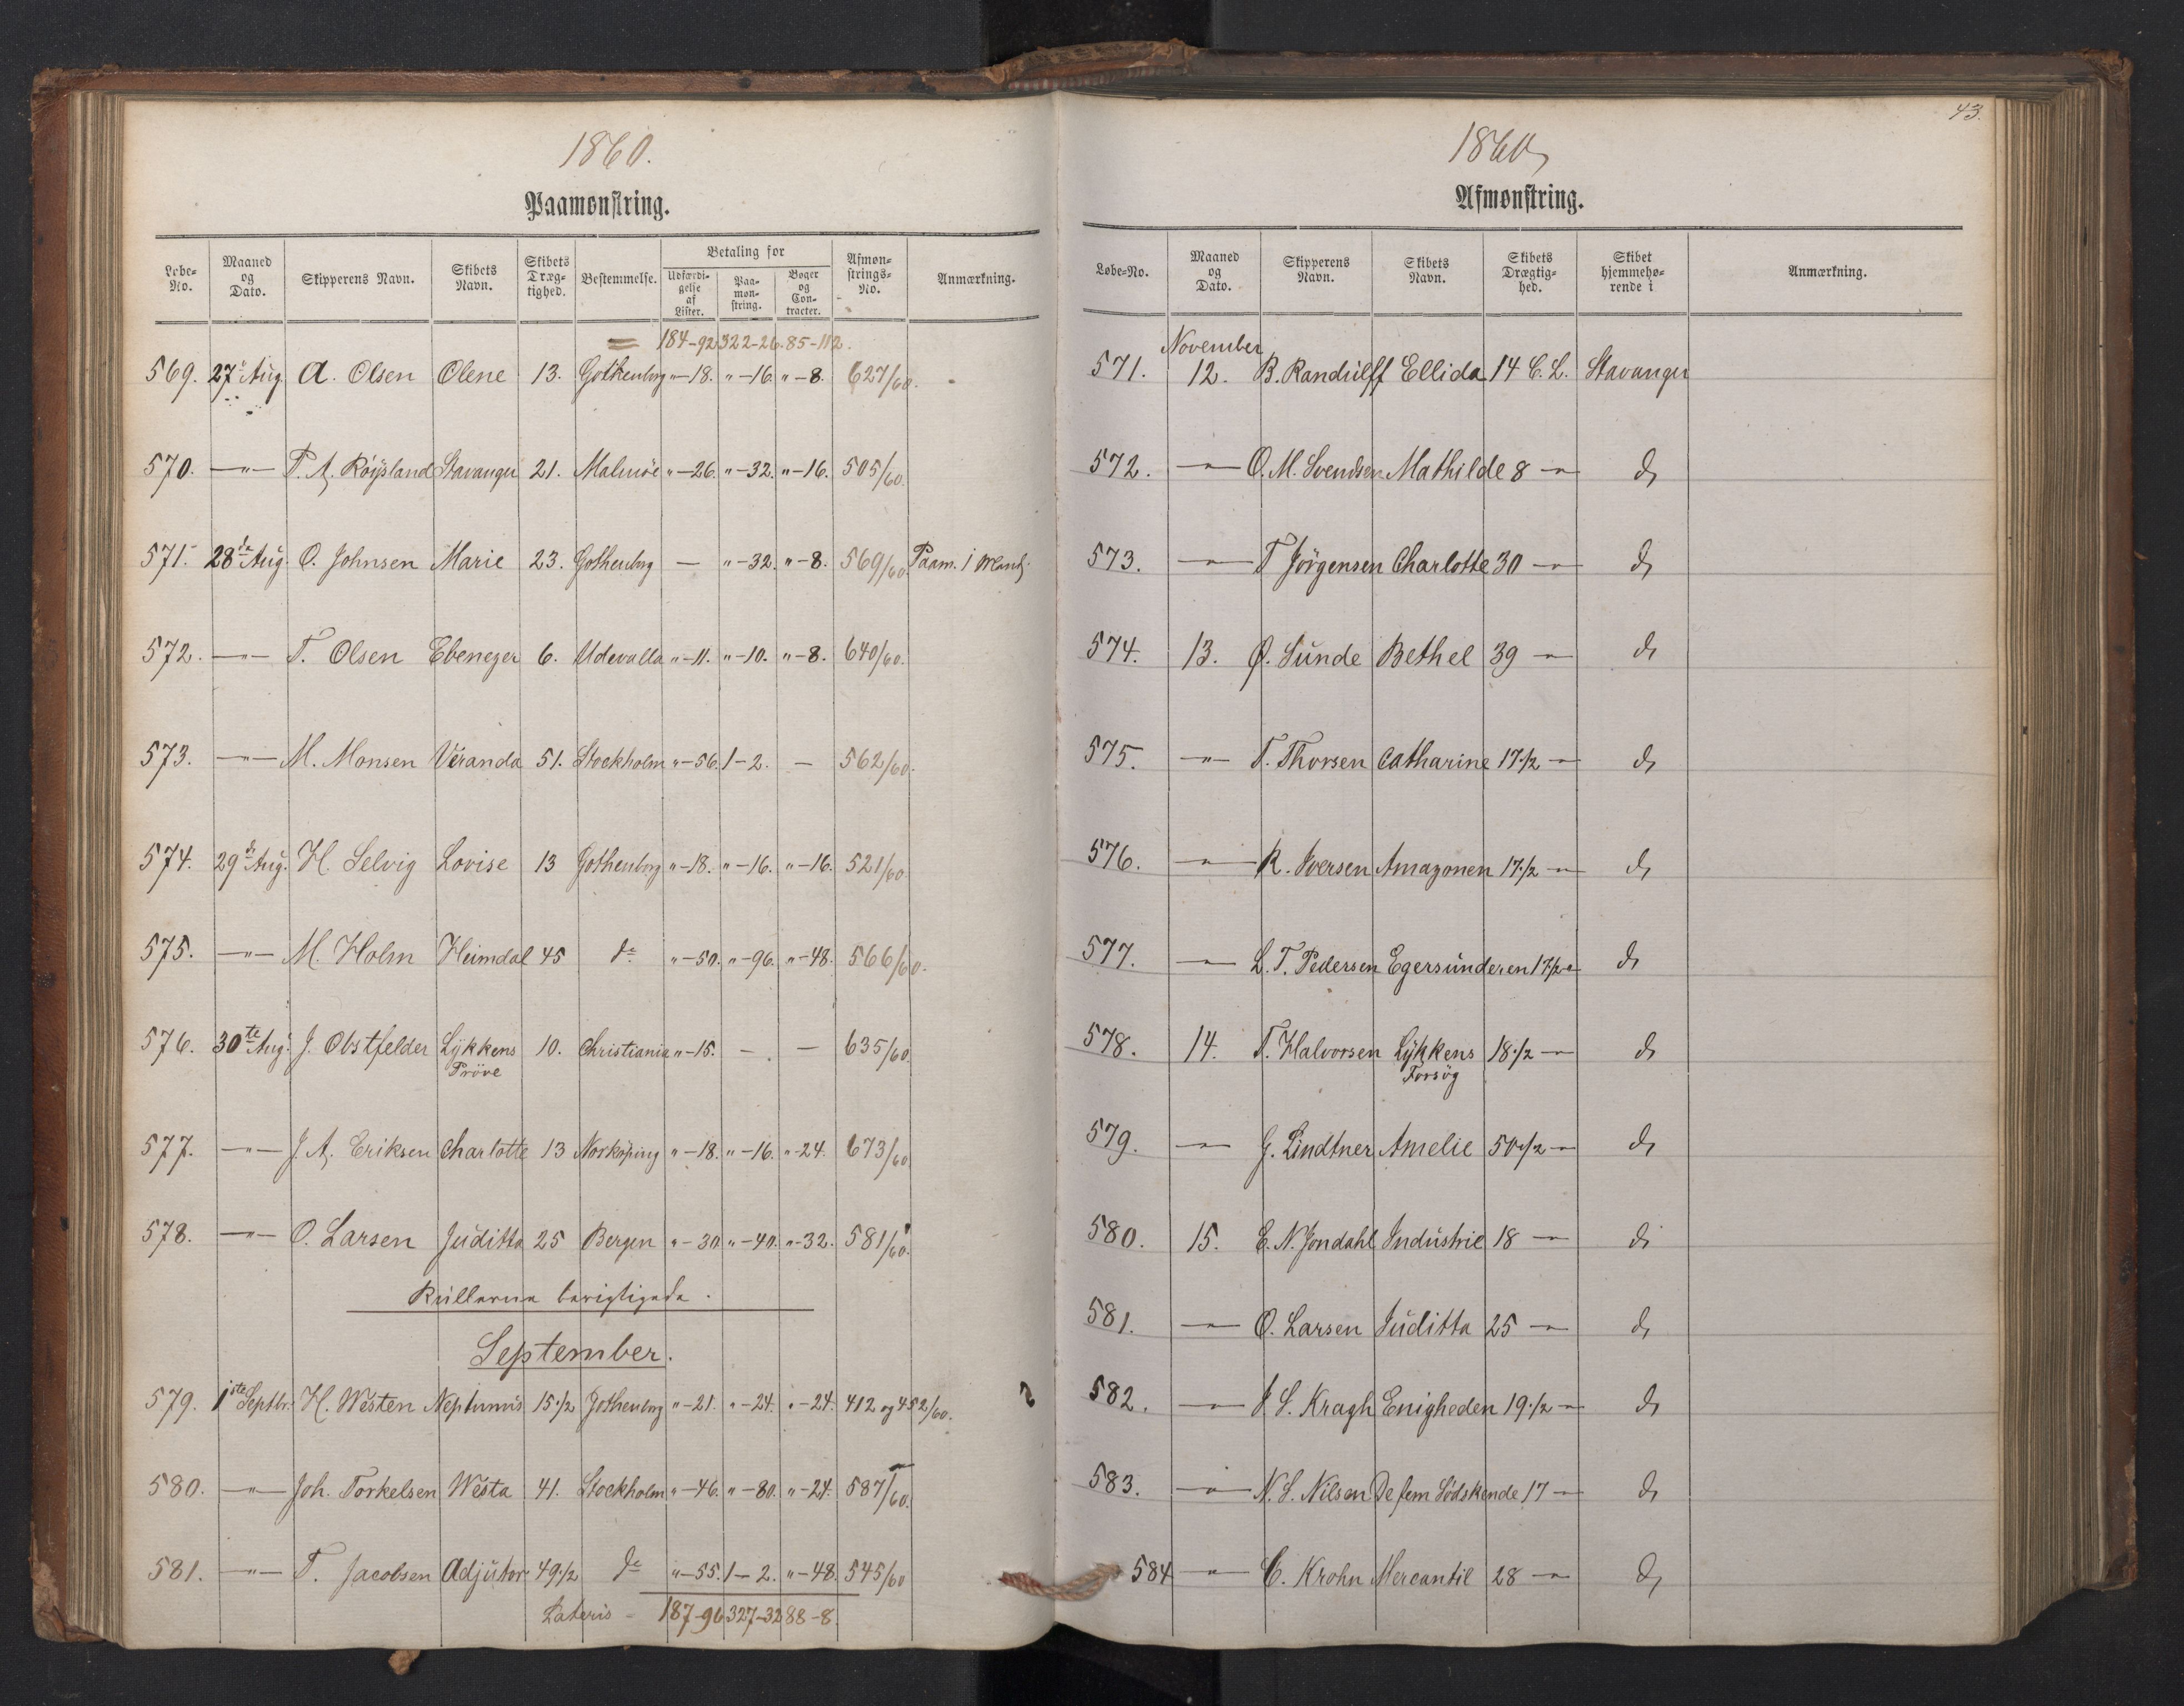 1860.
Paamønstring.
Løbe-No. Maaned og Dato. Skipperens Navn. Skibets Navn. Skibets Drægtighed. Bestemmelse. Betaling for Udfærdigelse af Lister. Paamønstring. Bøger og Contracter. Afmønstrings-No. Anmærkning.
184-92 322-26. 85-112.
569. 27de Aug A. Olsen Olene 13. Gothenborg "-18. "-16. "-8. 627/60.
570. —"— P. A. Röijsland Stavanger 21. Malmöe "-26. "-32. "-16. 505/60.
571. 28de Aug. O. Johnsen Marie 23. Gothenborg — "-32. "-8. 569/60 Paam. 1 Mand.
572. —"— T. Olsen Ebenezer 6. Udevalla "-11. "-10. "-8. 640/60.
573. —"— M. Monsen Veranda 51. Stockholm "-56. 1-2. — 562/60.
574. 29de Aug. H. Selvig Lovise 13 Gothenborg "-18. "-16. "-16. 521/60
575. —"— M. Holm Heimdal 45 do "-50. "-96. "-48. 566/60.
576. 30te Aug. J. Obstfelder Lykkens Pröve 10. Christiania "-15. — — 635/60
577. —"— J. A. Eriksen Charlotte 13 Norköping "-18. "-16. "-24. 673/60
578. —"— O. Larsen Juditta 25 Bergen "-30 "-40. "-32. 581/60.
Rullerne berigtigede.
September.
579. 1ste Septbr. H. Westen Neptunus 15 1/2 Gothenborg "-21. "-24. "-24. 412 og 452/60.
580. —"— Joh. Torkelsen Westa 41. Stockholm "-46. "-80. "-24. 587/60.
581. —"— T. Jacobsen Adjutor 49 1/2 do "-55. 1-2. "-48. 545/60
Lateris - 187-96 327-32 88-8.
43.
1860,
Afmønstring.
Løbe-No. Maaned og Dato. Skipperens Navn. Skibets Navn. Skibets Drægtighed. Skibet hjemmehørende i Anmærkning.
November
571. 12. B. Randulff Ellida 14 C. L. Stavanger
572. —"— O. M. Svendsen Mathilde 8 —"— do
573. —"— T Jörgensen Charlotte 30 —"— do
574. 13. O. Sunde Bethel 39 —"— do
575. —"— T. Thorsen Catharine 17 1/2 —"— do
576. —"— R. Iversen Amazonen 17 1/2 —"— do
577. —"— L. T. Pedersen Egersunderen 17 1/2 —"— do
578. 14. T. Halvorsen Lykkens Forsög 18 1/2 —"— do
579. —"— G. Lindtner Amelie 50 1/2 —"— do
580. 15. E. N. Jondahl Industrie 18 —"— do
581. —"— O. Larsen Juditta 25 —"— do
582. —"— J. S. Kragh Enigheden 19 1/2 —"— do
583. —"— N. S. Nilsen De fem Södskende 17 —"— do
584 —"— C. Krohn Mercantil 28 —"— do